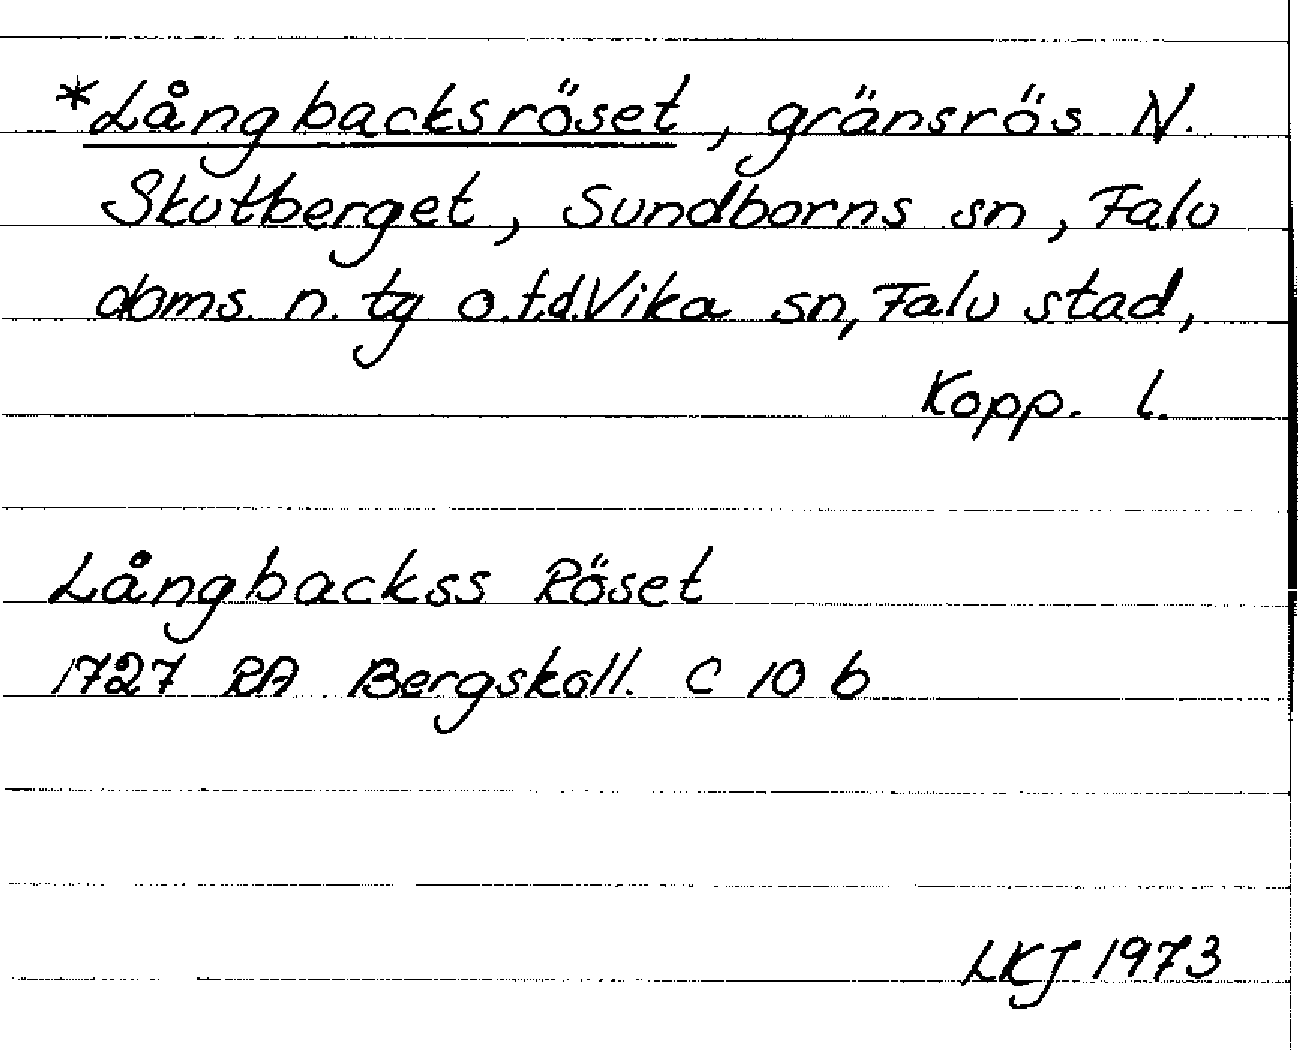 *Långbacksröset, gränsrös N.
Skutberget, Sundborns sn, Falu
doms. n. tg o.f.d.Vika sn, Falu stad,
Kopp. l.
Långbackss Röset
1727 RA Bergskoll. C 10 b
LKJ 1973